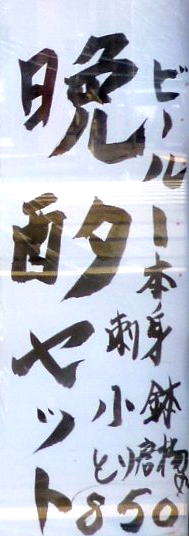 晩酌セット
ビール一本
刺身
小鉢
とり唐揚
850